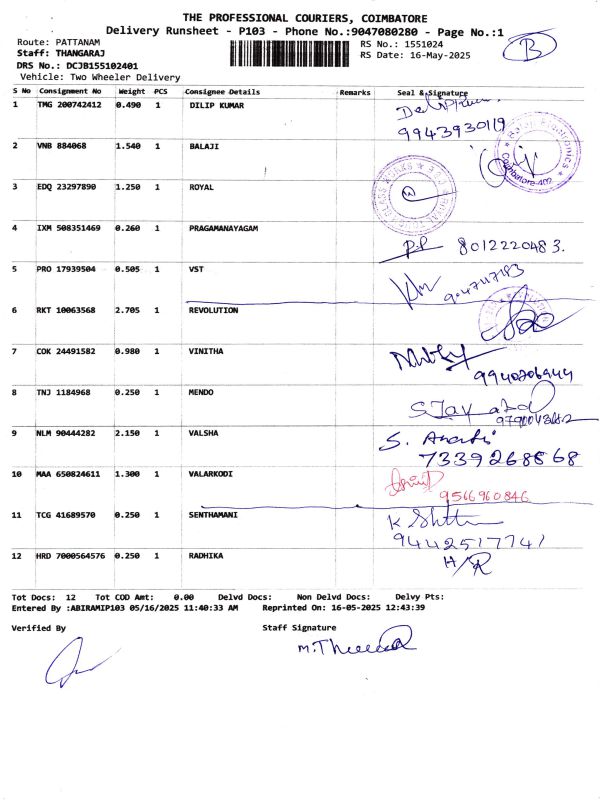 THE PROFESSIONAL COURIERS, COIMBATORE
Delivery Runsheet - P103 - Phone No.:9047080280 - Page No.:1
Route: PATTANAM RS No.: 1551024 B
Staff: THANGARAJ RS Date: 16-May-2025
DRS No.: DCJB155102401
Vehicle: Two Wheeler Delivery
S No Consignment No Weight PCS Consignee Details Remarks Seal & Signature
1 TMG 200742412 0.490 1 DILIP KUMAR
9943930119
2 VNB 884068 1.540 1 BALAJI
Coimbatore-402
3 EDQ 23297890 1.250 1 ROYAL
4 IXM 508351469 0.260 1 PRAGAMANAYAGAM
P.P 8012220483.
5 PRO 17939504 0.505 1 VST
6 RKT 10063568 2.705 1 REVOLUTION
7 COK 24491582 0.980 1 VINITHA
9940206944
8 TNJ 1184968 0.250 1 MENDO
9 NLM 90444282 2.150 1 VALSHA
7339268868
10 MAA 650824611 1.300 1 VALARKODI
9566960846
11 TCG 41689570 0.250 1 SENTHAMANI
9442517741
12 HRD 7000564576 0.250 1 RADHIKA
H/R
Tot Docs: 12 Tot COD Amt: 0.00 Delvd Docs: Non Delvd Docs: Delvy Pts:
Entered By :ABIRAMIP103 05/16/2025 11:40:33 AM Reprinted On: 16-05-2025 12:43:39
Verified By Staff Signature